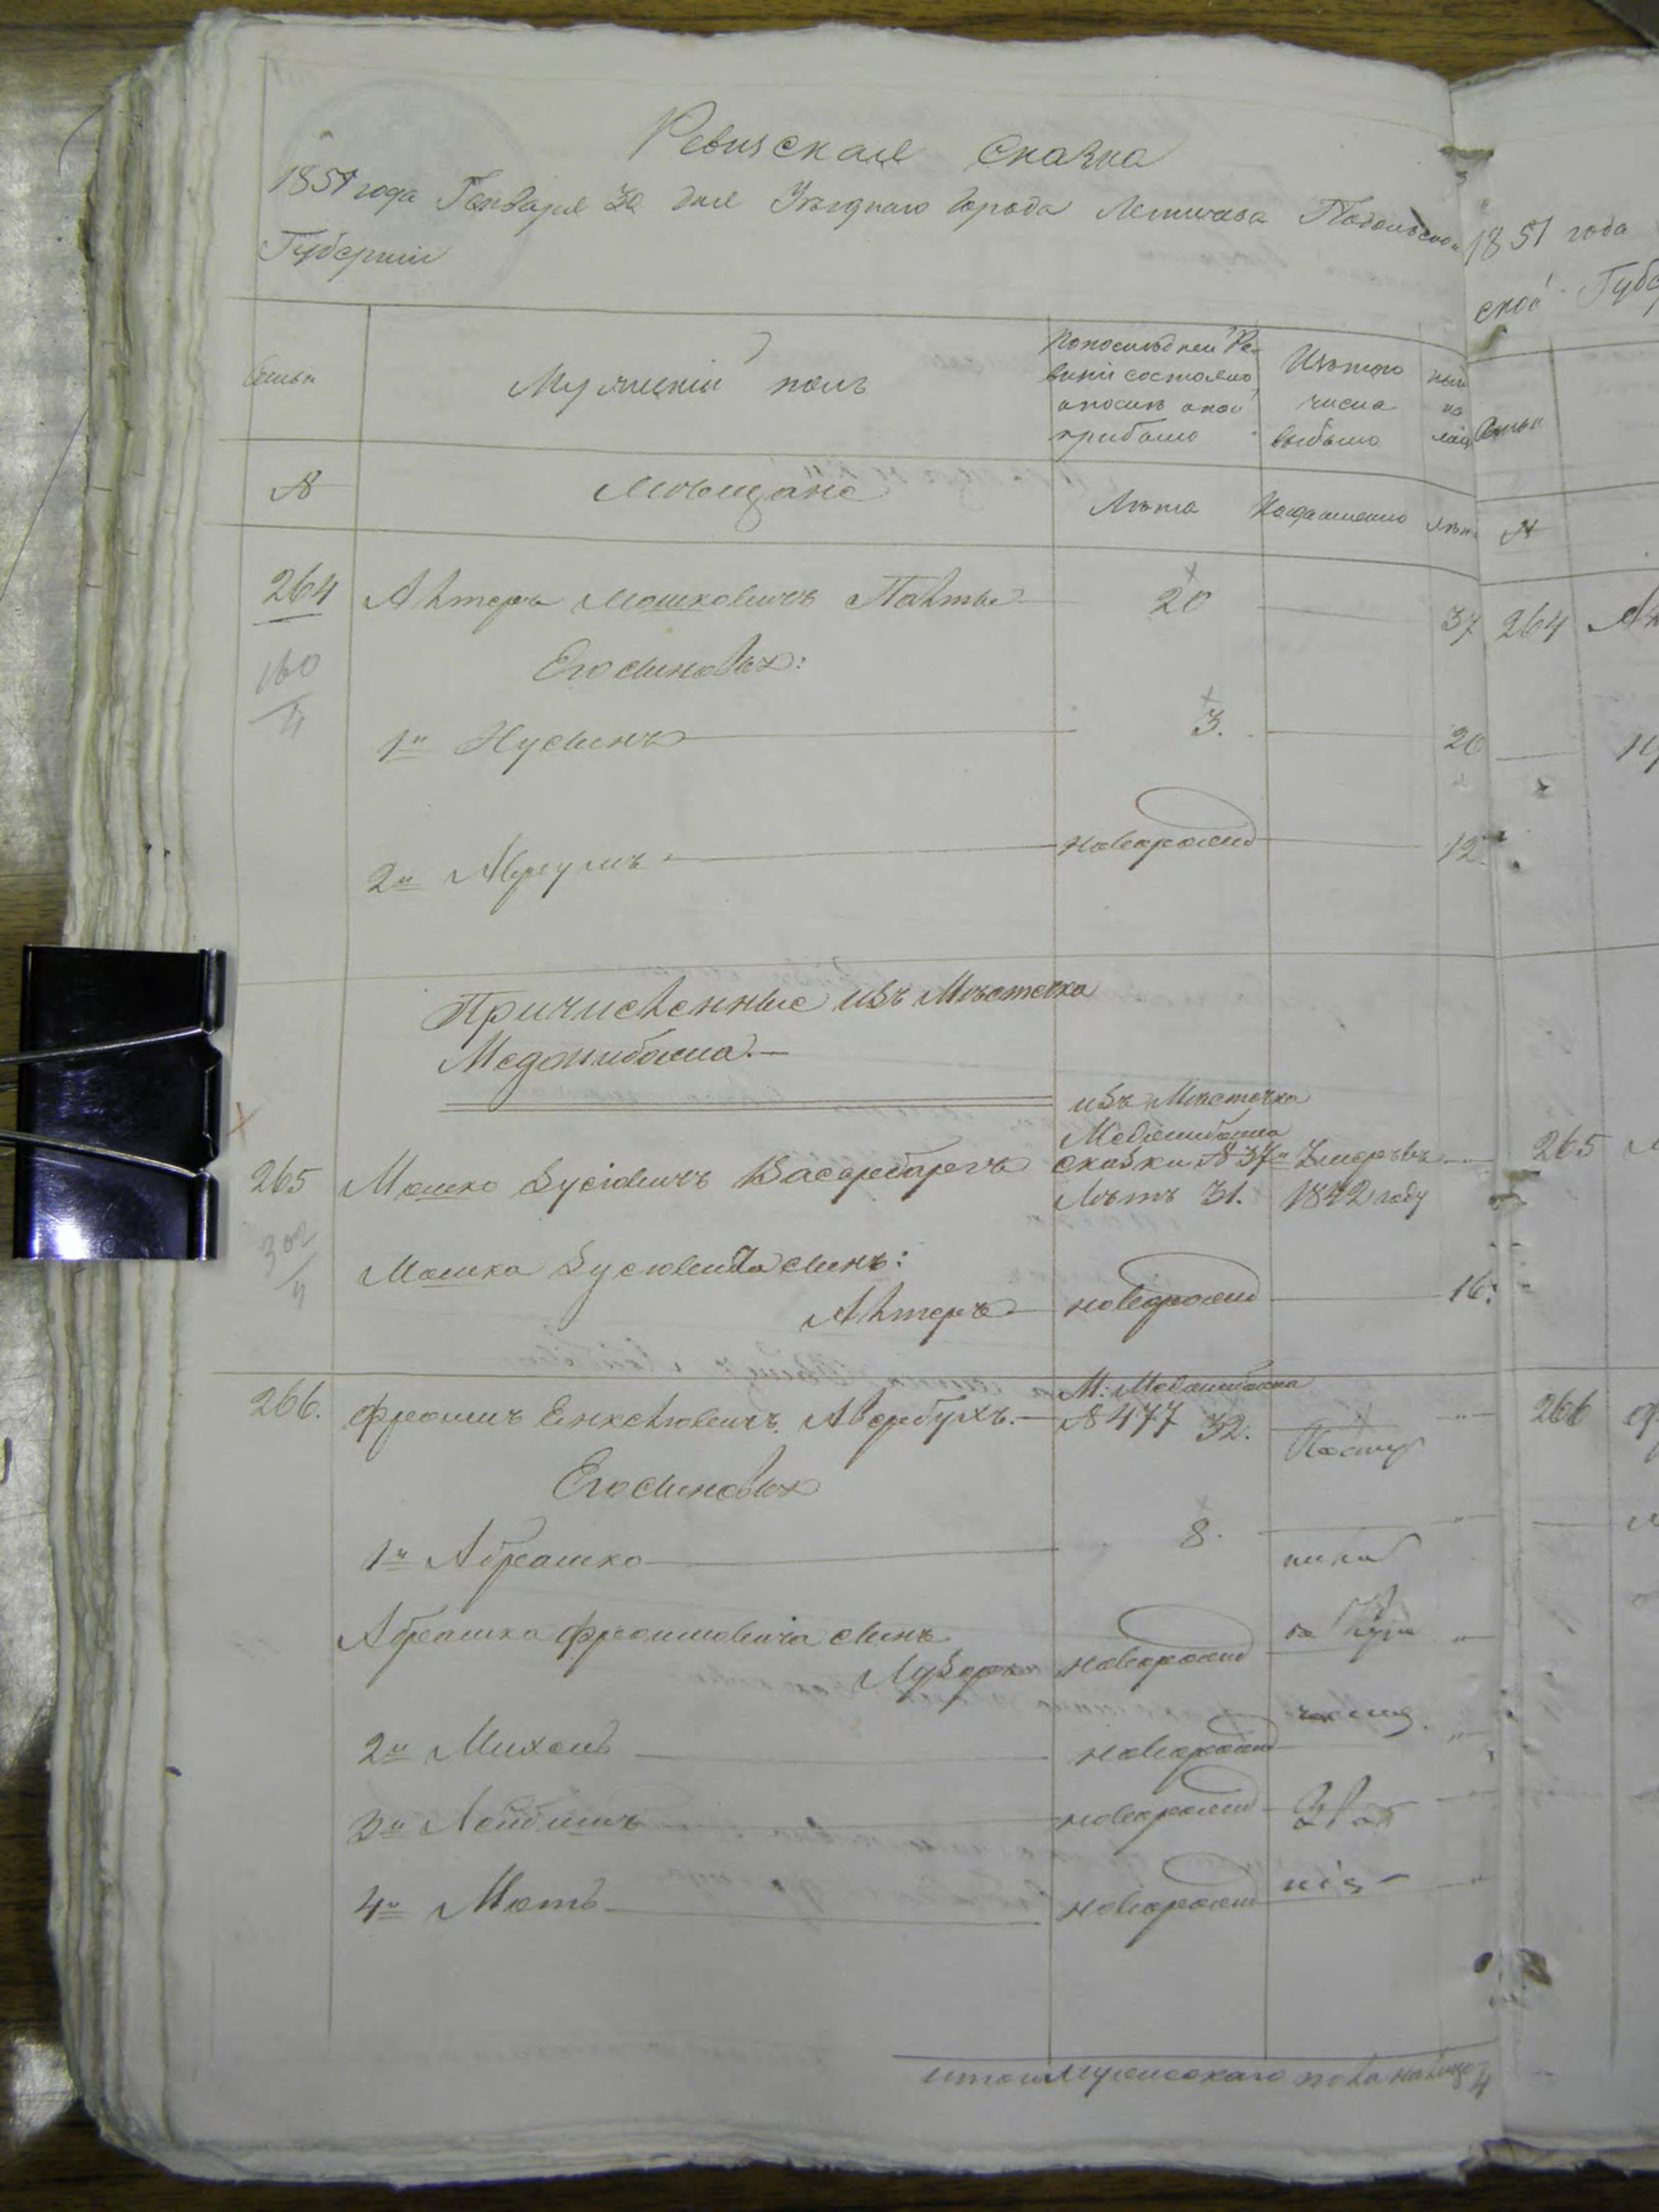 Ревизская сказка
1851 года Генваря 30 дня Уезднаго города Летичева Подольской
Губернии
Семьи
Мужескій полъ
По последней Ре-
визіи состояло
и после оной
прибыло
Изъ того
числа
выбыло
ныне
на
лицо
№
Мѣщане
Лѣта
Когда именно
Лѣта
264
Алтеръ Мошковичъ
20
37
160
4
Его сыновья:
1й Нусинъ
3.
20
2й Аврумъ
новорожд
12
Причисленные изъ Мѣстечка
Меджибожа.
изъ Мѣстечка
Меджибожа
265
Мошко Зусіовичъ Васербергъ
сказки № 37й
Умеръ въ
Лѣтъ 31.
1842 году
302
4
Мошка Зусіовича сынъ:
Алтеръ
новорожд
16.
266.
М: Меджибожа
Фроимъ Енкелювичъ Авербухъ.
№ 477 32.
Поступ
Его сыновья
1й Абрашко
8.
Абрашка Фроимовича сынъ
Лузеръ
новорожд
2й Михель
новорожд
3й Лейбишъ
новорожд
4й Моть
новорожд
нія
итого мужескаго пола на лицо 4
1851 года
ской Губе
Семьи
№
264
265
266